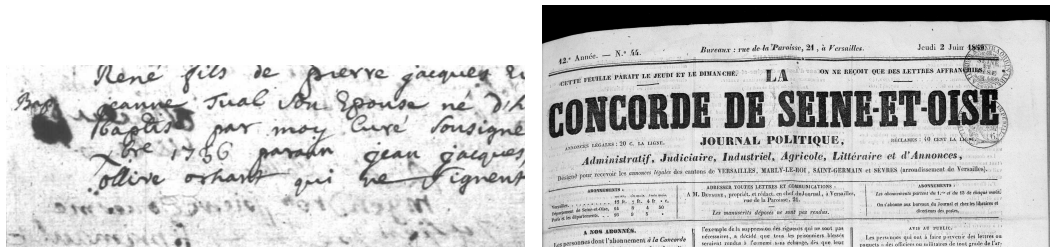 René fils de pierre jacques
Bap
jeanne Sual Son Epouse né d'h
Baptisé par moy Curé Sousigne
bre 1756 parain jean jacques
ollive orhant qui ne Signent
12.e Année. — N.° 44.
Bureaux : rue de la Paroisse, 21, à Versailles.
Jeudi 2 Juin
CETTE FEUILLE PARAIT LE JEUDI ET LE DIMANCHE.
ON NE REÇOIT QUE DES LETTRES AFFRANCHIES.
LA
CONCORDE DE SEINE-ET-OISE
ANNONCES LÉGALES : 20 C. LA LIGNE.
JOURNAL POLITIQUE,
RÉCLAMES : 40 CENT. LA LIGNE.
Administratif, Judiciaire, Industriel, Agricole, Littéraire et d'Annonces,
Désigné pour recevoir les annonces légales des cantons de VERSAILLES, MARLY-LE-ROI, SAINT-GERMAIN et SEVRES (arrondissement de Versailles).
ABONNEMENS :
Versailles
Département de Seine-et-Oise
Paris et les départemens
ADRESSER TOUTES LETTRES ET COMMUNICATIONS :
A M. propriét. et rédact. en chef du Journal, à Versailles,
rue de la Paroisse, 21.
Les manuscrits déposés ne sont pas rendus.
ABONNEMENS :
Les abonnements partent du 1.er et du 15 de chaque mois.
On s'abonne aux bureaux du Journal et chez les libraires et
directeurs des postes.
A NOS ABONNÉS.
Les personnes dont l'abonnement à la Concorde
l'exemple de la suppression des rigueurs qui ne sont pas
nécessaires, a décidé que tous les prisonniers blessés
seraient rendus à l'ennemi sans échange, dès que leur
AVIS AU PUBLIC.
Les personnes qui ont à faire parvenir des lettres ou